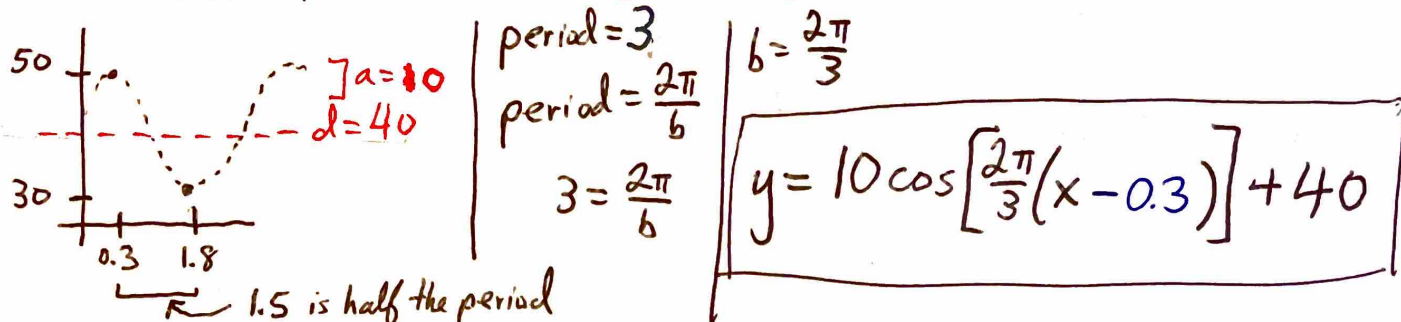 50
]a=10
d=40
30
0.3 1.8
1.5 is half the period
period=3
period=2π/b
3=2π/b
b=2π/3
y=10cos[2π/3(x-0.3)]+40